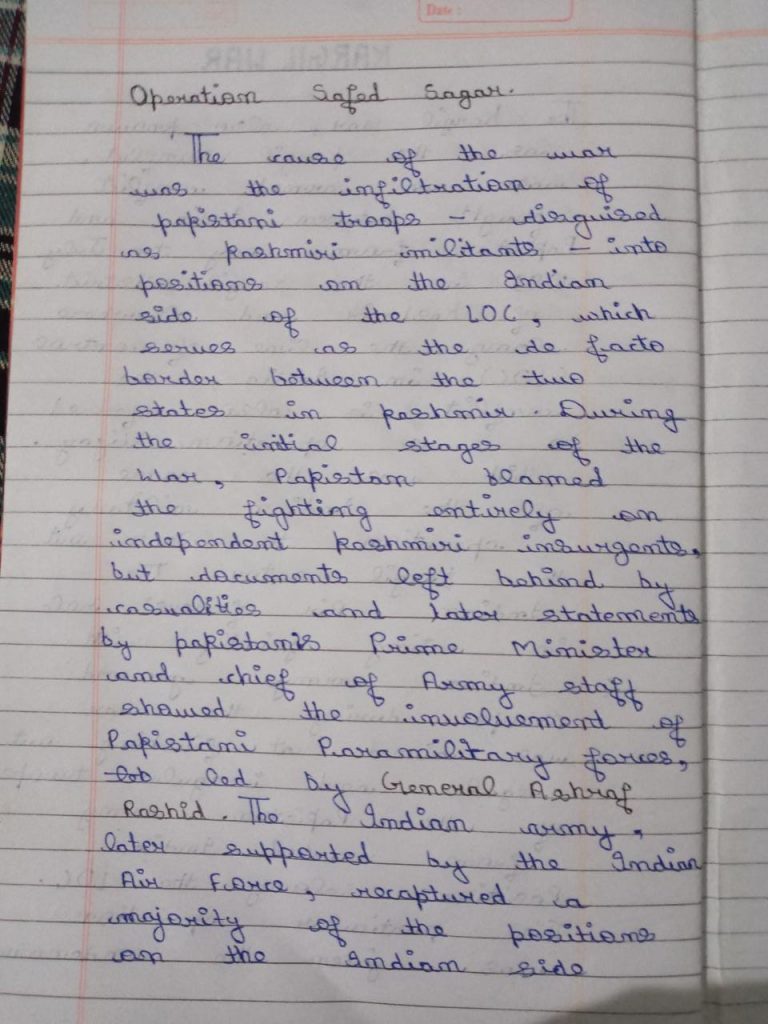 Date :
Operation Safed Sagar.
The cause of the war
was the infiltration of
pakistani troops - disguised
as kashmiri militants - into
positions on the Indian
side of the LOC, which
serves as the de facto
border between the two
states in kashmir. During
the initial stages of the
War, Pakistan blamed
the fighting entirely on
independent kashmiri insurgents,
but documents left behind by
casualities and later statements
by pakistanis Prime Minister
and chief of Army staff
showed the involvement of
Pakistani Paramilitary forces,
led by General Ashraf
Rashid. The Indian army,
later supported by the Indian
Air Force, recaptured a
majority of the positions
on the Indian side